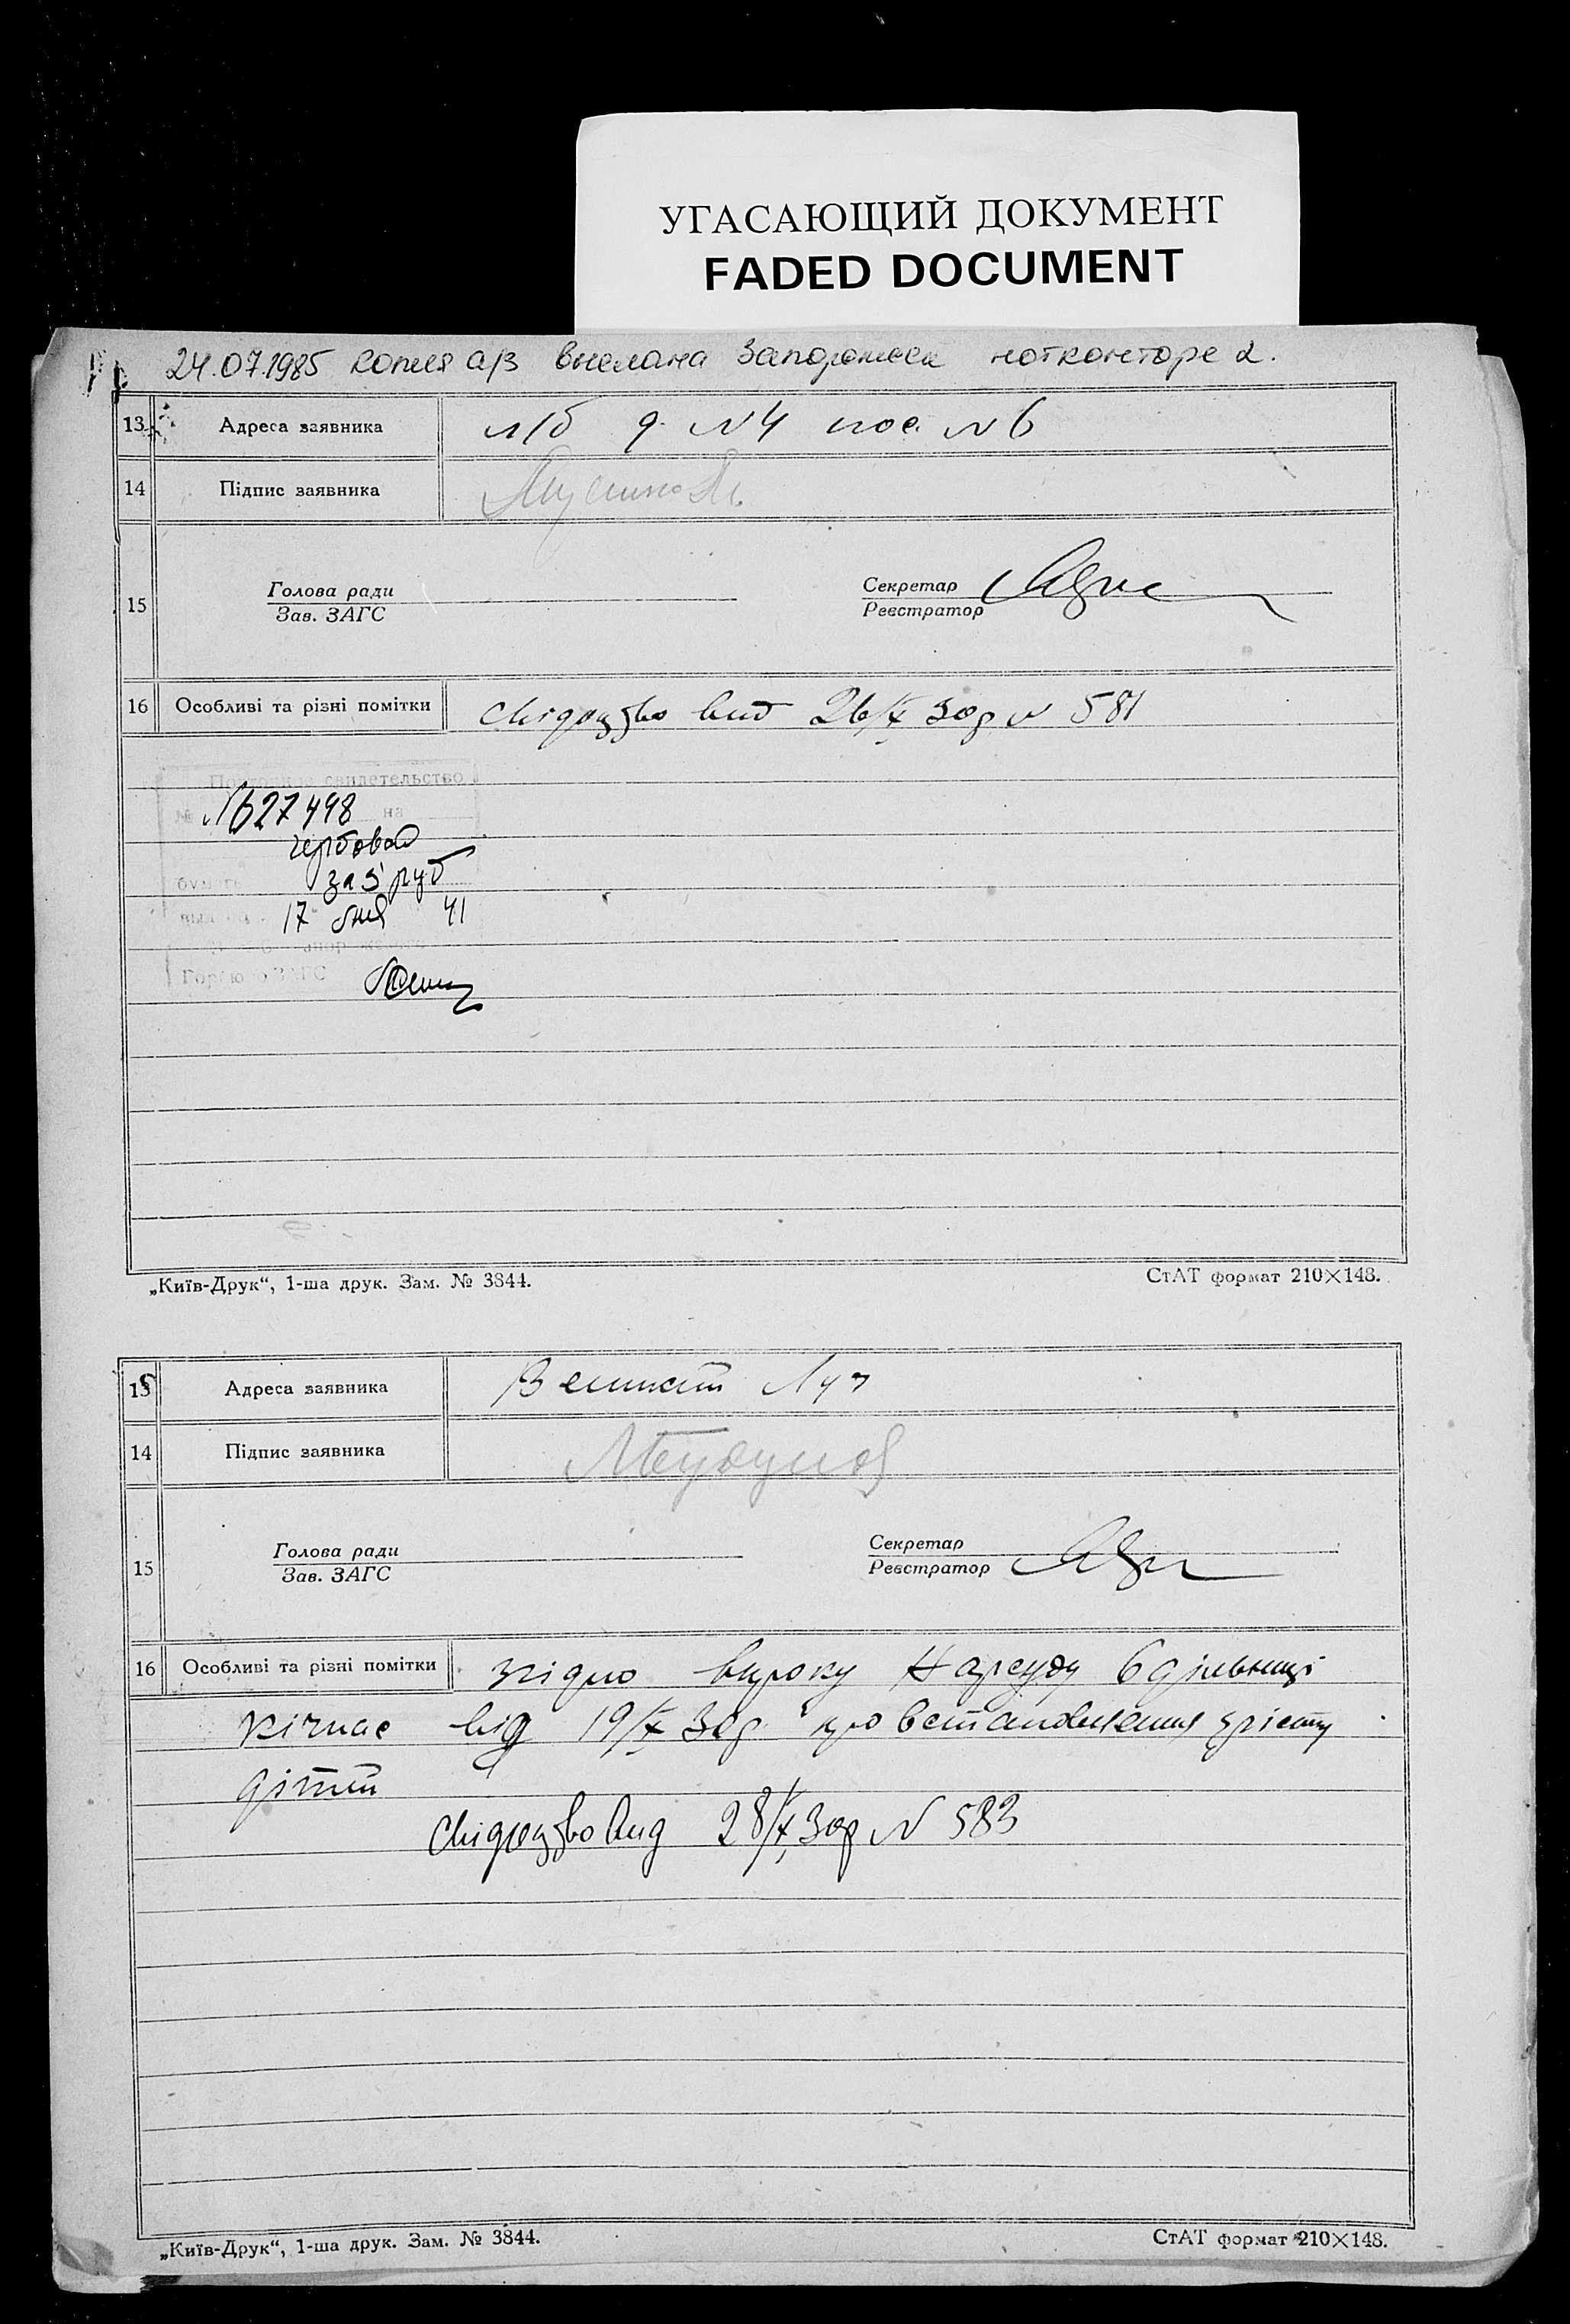 УГАСАЮЩИЙ ДОКУМЕНТ
FADED DOCUMENT
24.07.1985 копия а/з выслана Запорожск нотконторе 2.
13 Адреса заявника л/б д. №4 пос. №6
14 Підпис заявника
15 Голова ради Секретар
Зав. ЗАГС Реєстратор
16 Особливі та різні помітки свідоцтво вид 26/X 30р № 581
свидетельство
№ 627498 на
гербовой
за 5 руб
17 41
ЗАГС
„Київ-Друк“, 1-ша друк. Зам. № 3844.
СтАТ формат 210×148.
13 Адреса заявника Луч
14 Підпис заявника
15 Голова ради Секретар
Зав. ЗАГС Реєстратор
16 Особливі та різні помітки згідно вироку Нарсуду 6 дільниці
від 19/X 30р. про встановлення
дітей
свідоцтво вид 28/X 30р № 583
„Київ-Друк“, 1-ша друк. Зам. № 3844.
СтАТ формат 210×148.